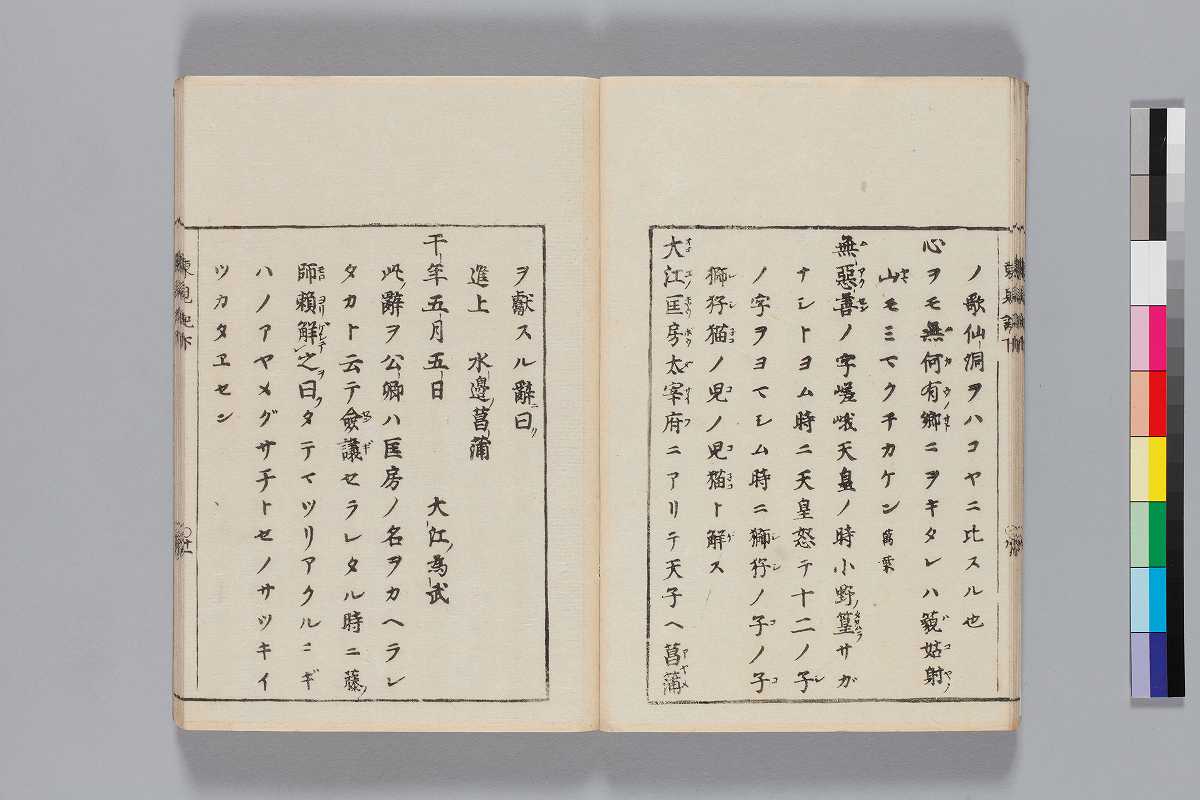 ノ歌仙洞ヲハコヤニ比スル也
心ヲモ無何有郷ニヲキタレハ藐姑射
山モミマクチカケン 萬葉
無惡善ノ字嵯峨天皇ノ時小野篁サガ
ナシトヨム時ニ天皇怒テ十二ノ子
ノ字ヲヨマシム時ニ獅㹀ノ子ノ子
獅㹀猫ノ児ノ児猫ト解ス
大江匡房太宰府ニアリテ天子ヘ菖蒲
ヲ獻スル辭曰
進上 水邊菖蒲
千年五月五日 大江為武
此辭ヲ公卿ハ匡房ノ名ヲカヘラレ
タカト云テ僉議セラレタル時ニ藤
師頼解之曰タテマツリアクルニギ
ハノアヤメグサチトセノサツキイ
ツカタヱセン